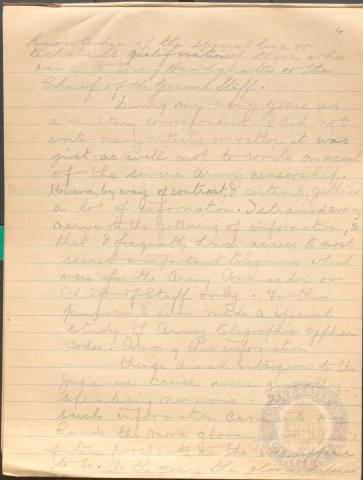 4
knowledge of the special line or
technical qualifications of those who
came to Army Headquarters or the
Chief of the General Staff.
During my many years as
a military correspondent I did not
write many articles or rather it was
just as well not to write on account
of the severe army censorship.
However, by way of contrast, I actively gathered
a lot of information. I strained every
nerve to the gathering of information, so
that I frequently had access to most
secret & important telegrams which
were for the Army Commander or
Chief of Staff only. For this
purpose I even made a special
study of Army telegraphic cypher
codes. Among this information
things disadvantageous to the
Japanese cause were generally
speaking numerous.
such information came to
hand the more gloomy
future prospects of the war appear
to be. As the years the gloom